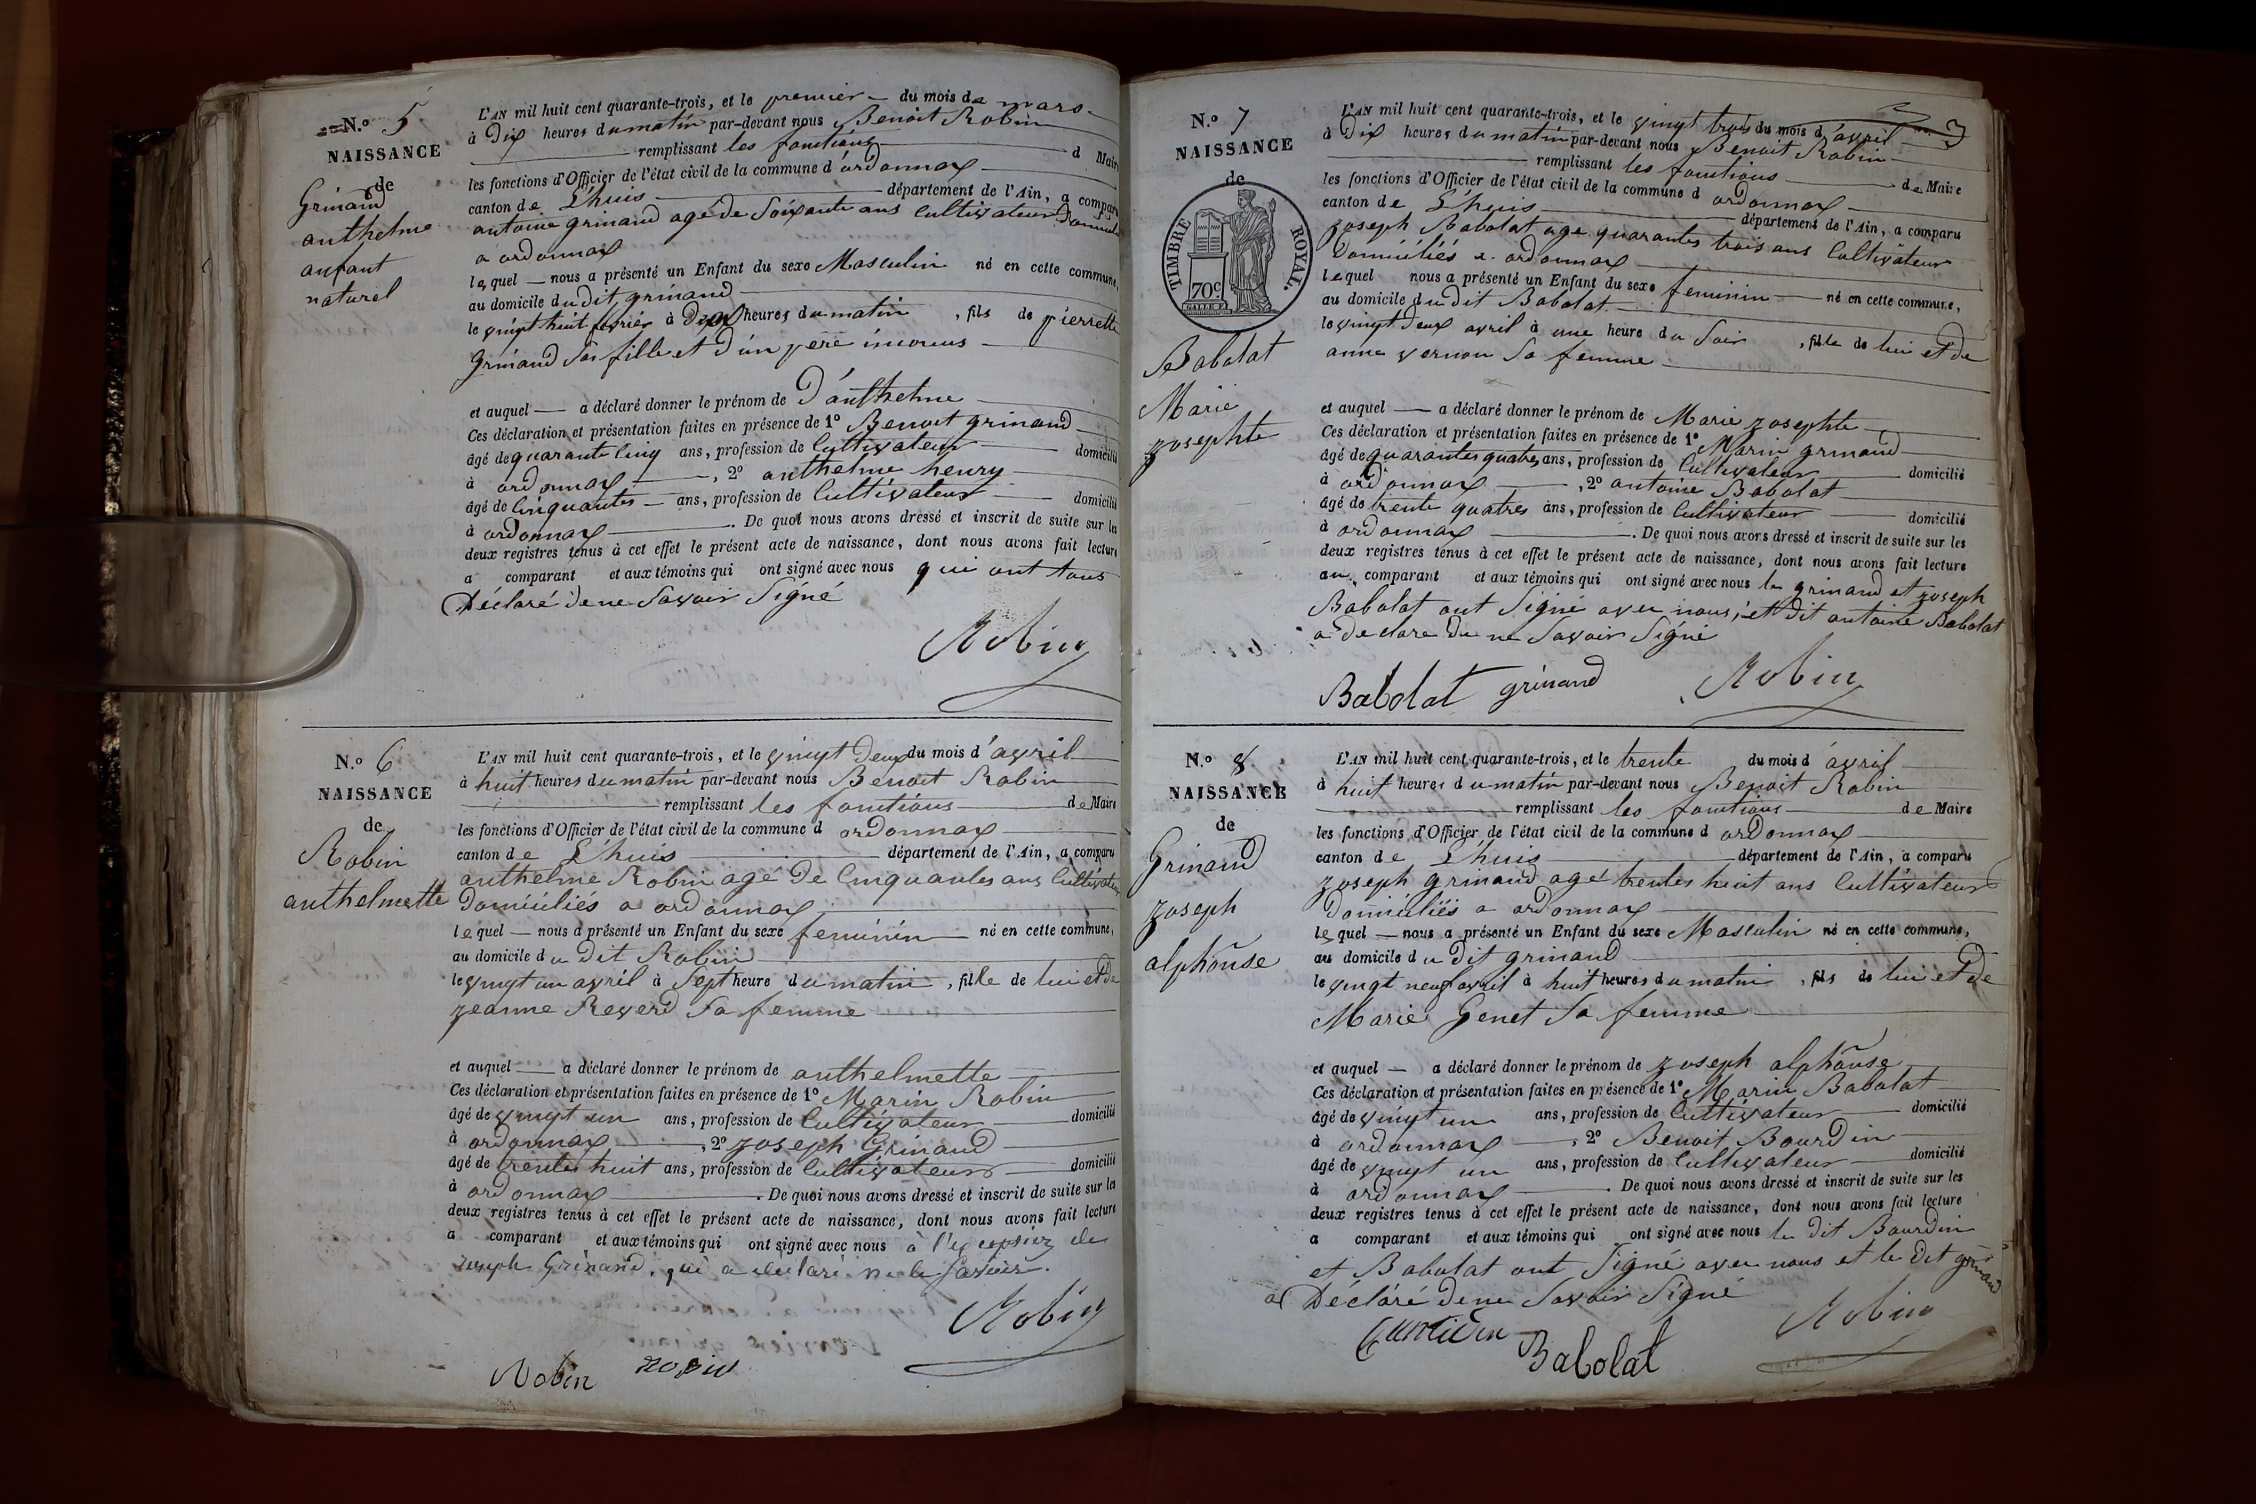 N.o 5
NAISSANCE
de
Grinand
anthelme
anfant
naturel
L'AN mil huit cent quarante-trois, et le premier du mois de mars
à Dix heures du matin par-devant nous Benoit Robin
remplissant les fonctions d Maire
les fonctions d'Officier de l'état civil de la commune d'ordonnax
canton de L'huis département de l'Ain, a comparu
antoine grinand agé de Soixante ans Cultivateur
a ordonnax
lequel nous a présenté un Enfant du sexe Masculin né en cette commune,
au domicile du dit grinand
le vingt huit fevrier à Dix heures du matin, fils de pierrette
grinand Sa fille et D'un pere inconus
et auquel a déclaré donner le prénom de D'anthelme
Ces déclaration et présentation faites en présence de 1o Benoit grinand
âgé de quarante Cinq ans, profession de Cultivateur domicilié
à ordonnax, 2o anthelme henry
âgé de Cinquantes ans, profession de Cultivateur domicilié
à ordonnax. De quoi nous avons dressé et inscrit de suite sur les
deux registres tenus à cet effet le présent acte de naissance, dont nous avons fait lecture
a comparant et aux témoins qui ont signé avec nous qui ont tous
Déclaré de ne Savoir Signé
Robin
N.o 6
NAISSANCE
de
Robin
anthelmette
L'AN mil huit cent quarante-trois, et le vingt Deux du mois d'avril
à huit heures du matin par-devant nous Benoit Robin
remplissant les fonctions de Maire
les fonctions d'Officier de l'état civil de la commune d ordonnax
canton de L'huis département de l'Ain, a comparu
anthelme Robin agé De Cinquantes ans Cultivateur
Domiciliés a ordonnax
lequel nous a présenté un Enfant du sexe feminin né en cette commune,
au domicile du Dit Robin
le vingt un avril à Sept heure du matin, fille de lui et de
zeanne Reverd Sa femme
et auquel a déclaré donner le prénom de anthelmette
Ces déclaration et présentation faites en présence de 1o Marin Robin
âgé de vingt un ans, profession de Cultivateur domicilié
à ordonnax, 2o zoseph Grinand
âgé de trentes huit ans, profession de Cultivateurs domicilié
à ordonnax. De quoi nous avons dressé et inscrit de suite sur les
deux registres tenus à cet effet le présent acte de naissance, dont nous avons fait lecture
a comparant et aux témoins qui ont signé avec nous à l'exception de
Joseph Grinand, qui a déclaré ne le Savoir.
Robin
Robin robin
N.o 7
NAISSANCE
de
TIMBRE ROYAL.
70c.
Babolat
Marie
zosephte
3
L'AN mil huit cent quarante-trois, et le vingt trois du mois d'avril
à Dix heures du matin par-devant nous Benoit Robin
remplissant les fonctions de Maire
les fonctions d'Officier de l'état civil de la commune d ordonnax
canton de L'huis département de l'Ain, a comparu
zoseph Babolat age quarantes trois ans Cultivateur
Domiciliés a ordonnax
lequel nous a présenté un Enfant du sexe feminin né en cette commune,
au domicile du dit Babolat
le vingt Deux avril à une heure du Soir, fille de lui et De
anne vernou Sa femme
et auquel a déclaré donner le prénom de Marie zosephte
Ces déclaration et présentation faites en présence de 1o Marin grinand
âgé de quarantes quatres ans, profession de Cultivateur domicilié
à ordonnax, 2o antoine Babolat
âgé de trente quatres ans, profession de Cultivateur domicilié
à ordonnax. De quoi nous avons dressé et inscrit de suite sur les
deux registres tenus à cet effet le présent acte de naissance, dont nous avons fait lecture
au comparant et aux témoins qui ont signé avec nous le grinand et zoseph
Babolat ont Signé avec nous, et dit antoine Babolat
a Declare De ne Savoir Signé
Babolat grinand Robin
N.o 8
NAISSANCE
de
Grinand
zoseph
alphonse
L'AN mil huit cent quarante-trois, et le trente du mois d'avril
à huit heures du matin par-devant nous Benoit Robin
remplissant les fonctions de Maire
les fonctions d'Officier de l'état civil de la commune d ordonnax
canton de L'huis département de l'Ain, a comparu
zoseph grinand agé trentes huit ans Cultivateur
Domiciliés a ordonnax
lequel nous a présenté un Enfant du sexe Masculin né en cette commune,
au domicile du dit grinand
le vingt neuf avril à huit heures du matin, fils de lui et De
Marie Genet Sa femme
et auquel a déclaré donner le prénom de zoseph alphonse
Ces déclaration et présentation faites en présence de 1o Marin Babolat
âgé de vingt un ans, profession de Cultivateur domicilié
à ordonnax, 2o Benoit Bourdin
âgé de vingt un ans, profession de Cultivateur domicilié
à ordonnax. De quoi nous avons dressé et inscrit de suite sur les
deux registres tenus à cet effet le présent acte de naissance, dont nous avons fait lecture
a comparant et aux témoins qui ont signé avec nous le Dit Bourdin
et Babolat ont Signé avec nous et le Dit grinand
a Déclaré De ne Savoir Signé
Robin
Babolat